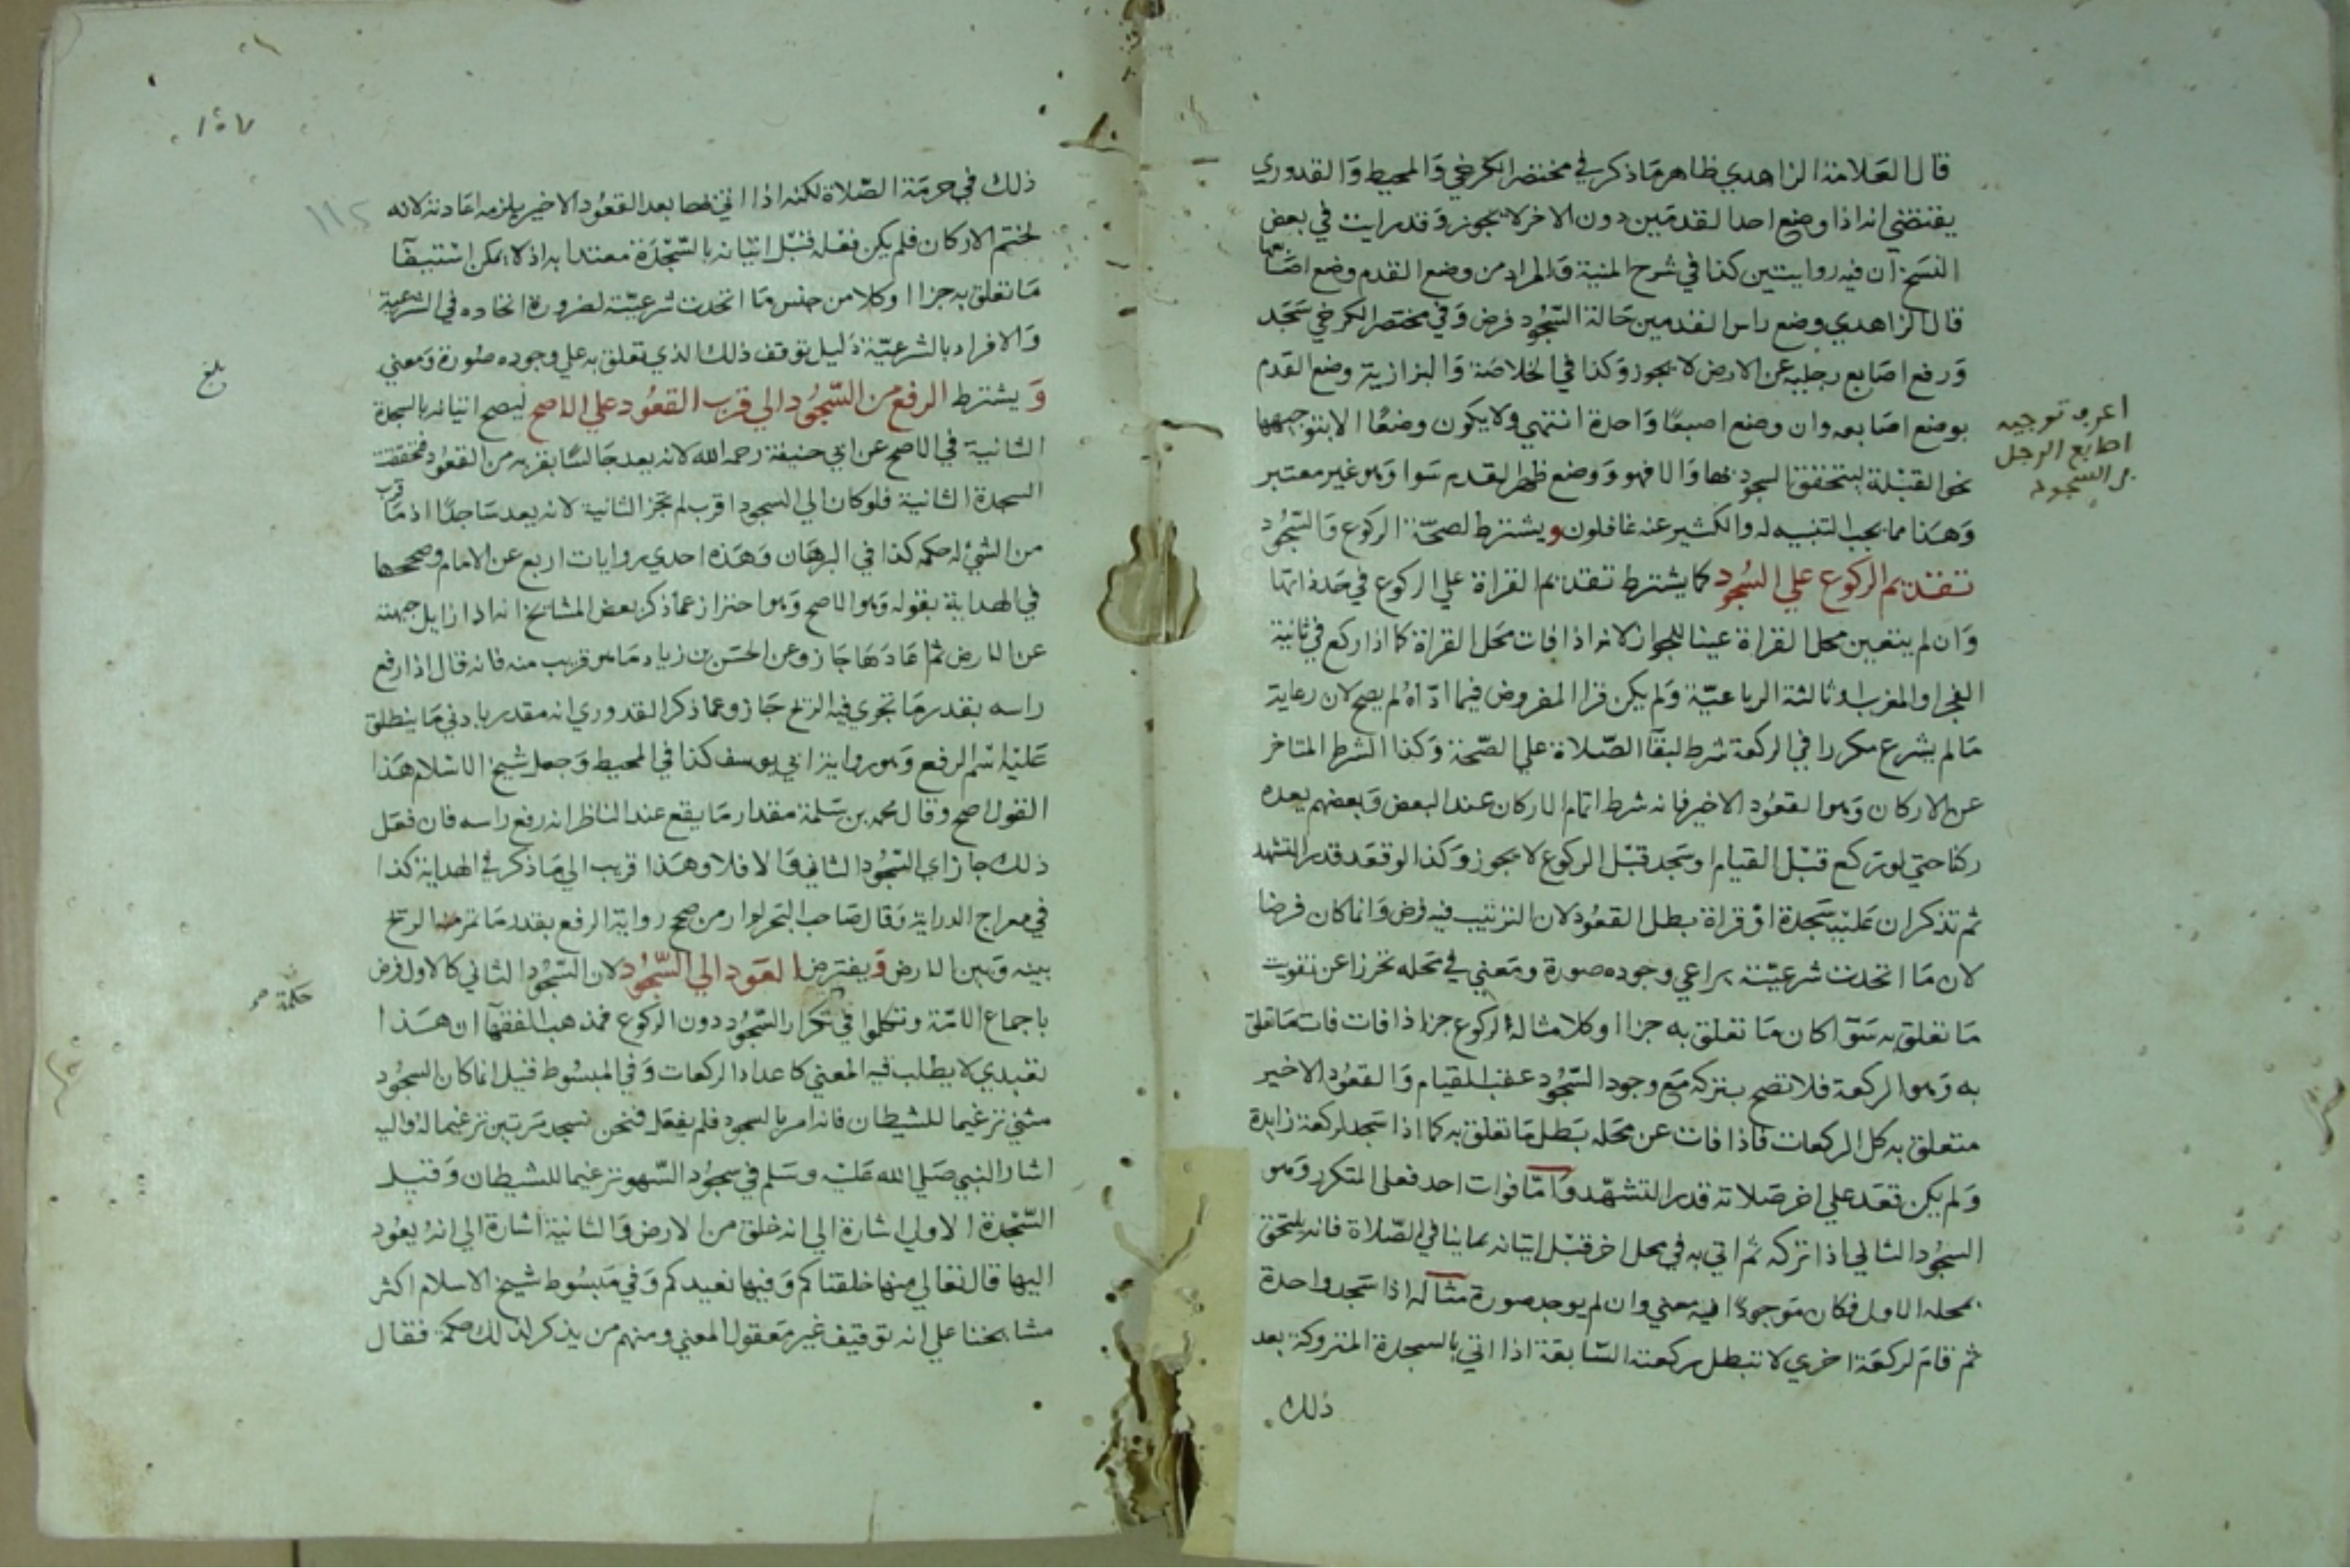 قال العلامة الزاهدي ظاهر ما ذكر في مختصر الكرخي والمحيط والقدوري
يقتضي انه اذا وضع احد القدمين دون الاخر لا يجوز وقد رايت في بعض
النسخ ان فيه روايتين كذا في شرح المنية والمراد من وضع القدم وضع اصابعها
قال الزاهدي وضع راس القدمين حالة السجود فرض وفي مختصر الكرخي سجد
ورفع اصابع رجليه عن الارض لا يجوز وكذا في الخلاصة والبزازية وضع القدم
بوضع اصابعه وان وضع اصبعا واحدة انتهي ولا يكون وضعا الا بتوجيهها
نحو القبلة ليتحقق السجود بها والا فهو ووضع ظهر القدم سوا وهو غير معتبر
وهذا مما يجب التنبيه له والكثير عنه غافلون ويشترط لصحة الركوع والسجود
تقديم الركوع علي السجود كما يشترط تقديم القراة علي الركوع في حد ذاتها
وان لم يتعين محل القراة عينا للجواز لانه اذا فات محل القراة كما اذا ركع في ثانية
الفجر او المغرب او ثالثة الرباعية ولم يكن قرا المفروض فيما اداه لم يصح لان رعاية
ما لم يشرع مكررا في الركعة شرط لبقا الصلاة علي الصحة وكذا الشرط المتاخر
عن الاركان وهو القعود الاخير فانه شرط اتمام الاركان عند البعض وبعضهم يعده
ركنا حتي لو ركع قبل القيام او سجد قبل الركوع لا يجوز وكذا لو قعد قدر التشهد
ثم تذكر ان عليه سجدة او قراة بطل القعود لان الترتيب فيه فرض وانما كان فرضا
لان ما اتحدت شرعيته يراعي وجوده صورة ومعني في محله تحرزا عن تفويت
ما تعلق به سوا كان ما تعلق به جزا او كلا مثاله الركوع جزا اذا فات فات ما تعلق
به وهو الركعة فلا تصح بتركه مع وجود السجود عقب القيام والقعود الاخير
متعلق به كل الركعات فاذا فات عن محله بطل ما تعلق به كما اذا سجد لركعة زايدة
ولم يكن قعد علي اخر صلاته قدر التشهد واما فوات احد فعلي المتكرر وهو
السجود الثاني اذا تركه ثم اتي به في محل اخر قبل اتيانه بما ينافي الصلاة فانه يلتحق
بمحله الاول فكان موجودا فيه معني وان لم يوجد صورة مثاله اذا سجد واحدة
ثم قام لركعة اخري لا تبطل ركعته السابقة اذا اتي بالسجدة المتروكة بعد
ذلك
اعرف توجيه
اصابع الرجل
في السجود
١٥٧
١١٥
ذلك في حرمة الصلاة لكنه اذا اتي بها بعد القعود الاخير يلزمه اعادته لانه
لختم الاركان فلم يكن فعله قبل اتيانه بالسجدة معتدا به اذ لا يمكن استيفا
ما تعلق به جزا او كلا من جنس ما اتحدت شرعيته لضرورة اتحاده في الشرعية
والافراد بالشرعية دليل توقف ذلك الذي تعلق به علي وجوده صورة ومعني
و يشترط الرفع من السجود الي قرب القعود علي الاصح ليصح اتيانه بالسجدة
الثانية في الاصح عن ابي حنيفة رحمه الله لانه يعد جالسا بقربه من القعود فتحققت
السجدة الثانية فلو كان الي السجود اقرب لم تجز الثانية لانه يعد ساجدا اذ ما قرب
من الشي له حكمه كذا في البرهان وهذه احدي روايات اربع عن الامام وصححها
في الهداية بقوله وهو الاصح وهو احتراز عما ذكر بعض المشايخ انه اذا زايل جبهته
عن الارض ثم اعادها جاز وعن الحسن بن زياد ما هو قريب منه فانه قال اذا رفع
راسه بقدر ما تجري فيه الريح جاز وعما ذكر القدوري انه مقدر بادني ما ينطلق
عليه اسم الرفع وهو رواية ابي يوسف كذا في المحيط وجعل شيخ الاسلام هذا
القول اصح وقال محمد بن سلمة مقدار ما يقع عند الناظر انه رفع راسه فان فعل
ذلك جاز اي السجود الثاني والا فلا وهذا قريب الي ما ذكر في الهداية كذا
في معراج الدراية وقال صاحب البحر لم ار من صحح رواية الرفع بقدر ما تمر الريح
بينه وبين الارض ويفترض العود الي السجود لان السجود الثاني كالاول فرض
باجماع الامة وتكلموا في تكرار السجود دون الركوع فمذهب الفقها ان هذا
تعبدي لا يطلب فيه المعني كاعداد الركعات وفي المبسوط قيل انما كان السجود
مثني ترغيما للشيطان فانه امر بالسجود فلم يفعل فنحن نسجد مرتين ترغيما له واليه
اشار النبي صلي الله عليه وسلم في سجود السهو ترغيما للشيطان وقيل
السجدة الاولي اشارة الي انه خلق من الارض والثانية اشارة الي انه يعود
اليها قال تعالي منها خلقناكم وفيها نعيدكم وفي مبسوط شيخ الاسلام اكثر
مشايخنا علي انه توقيف غير معقول المعني ومنهم من يذكر لذلك حكمة فقال
بلغ
حكمة